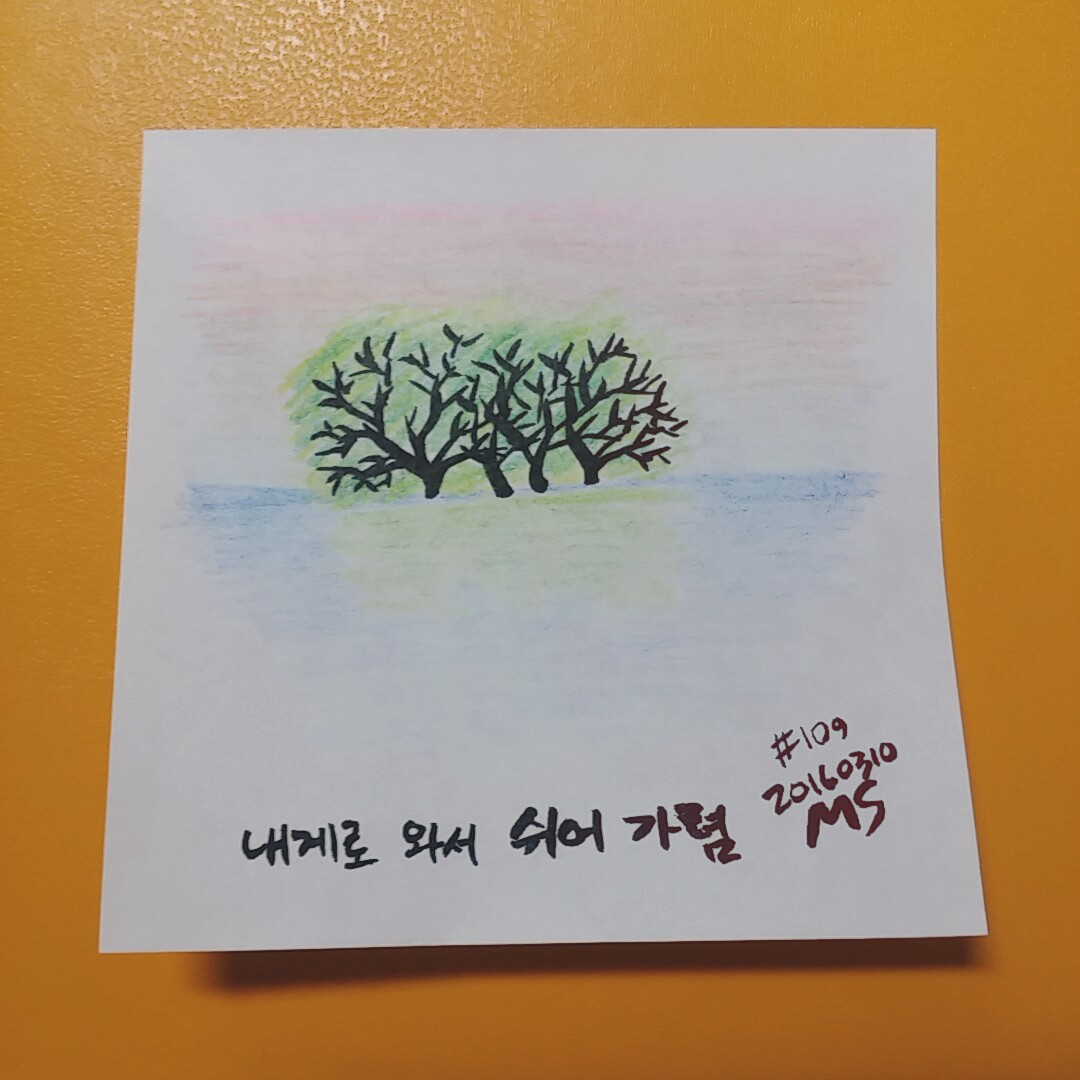 #109
20160310
MS
내게로 와서 쉬어 가렴